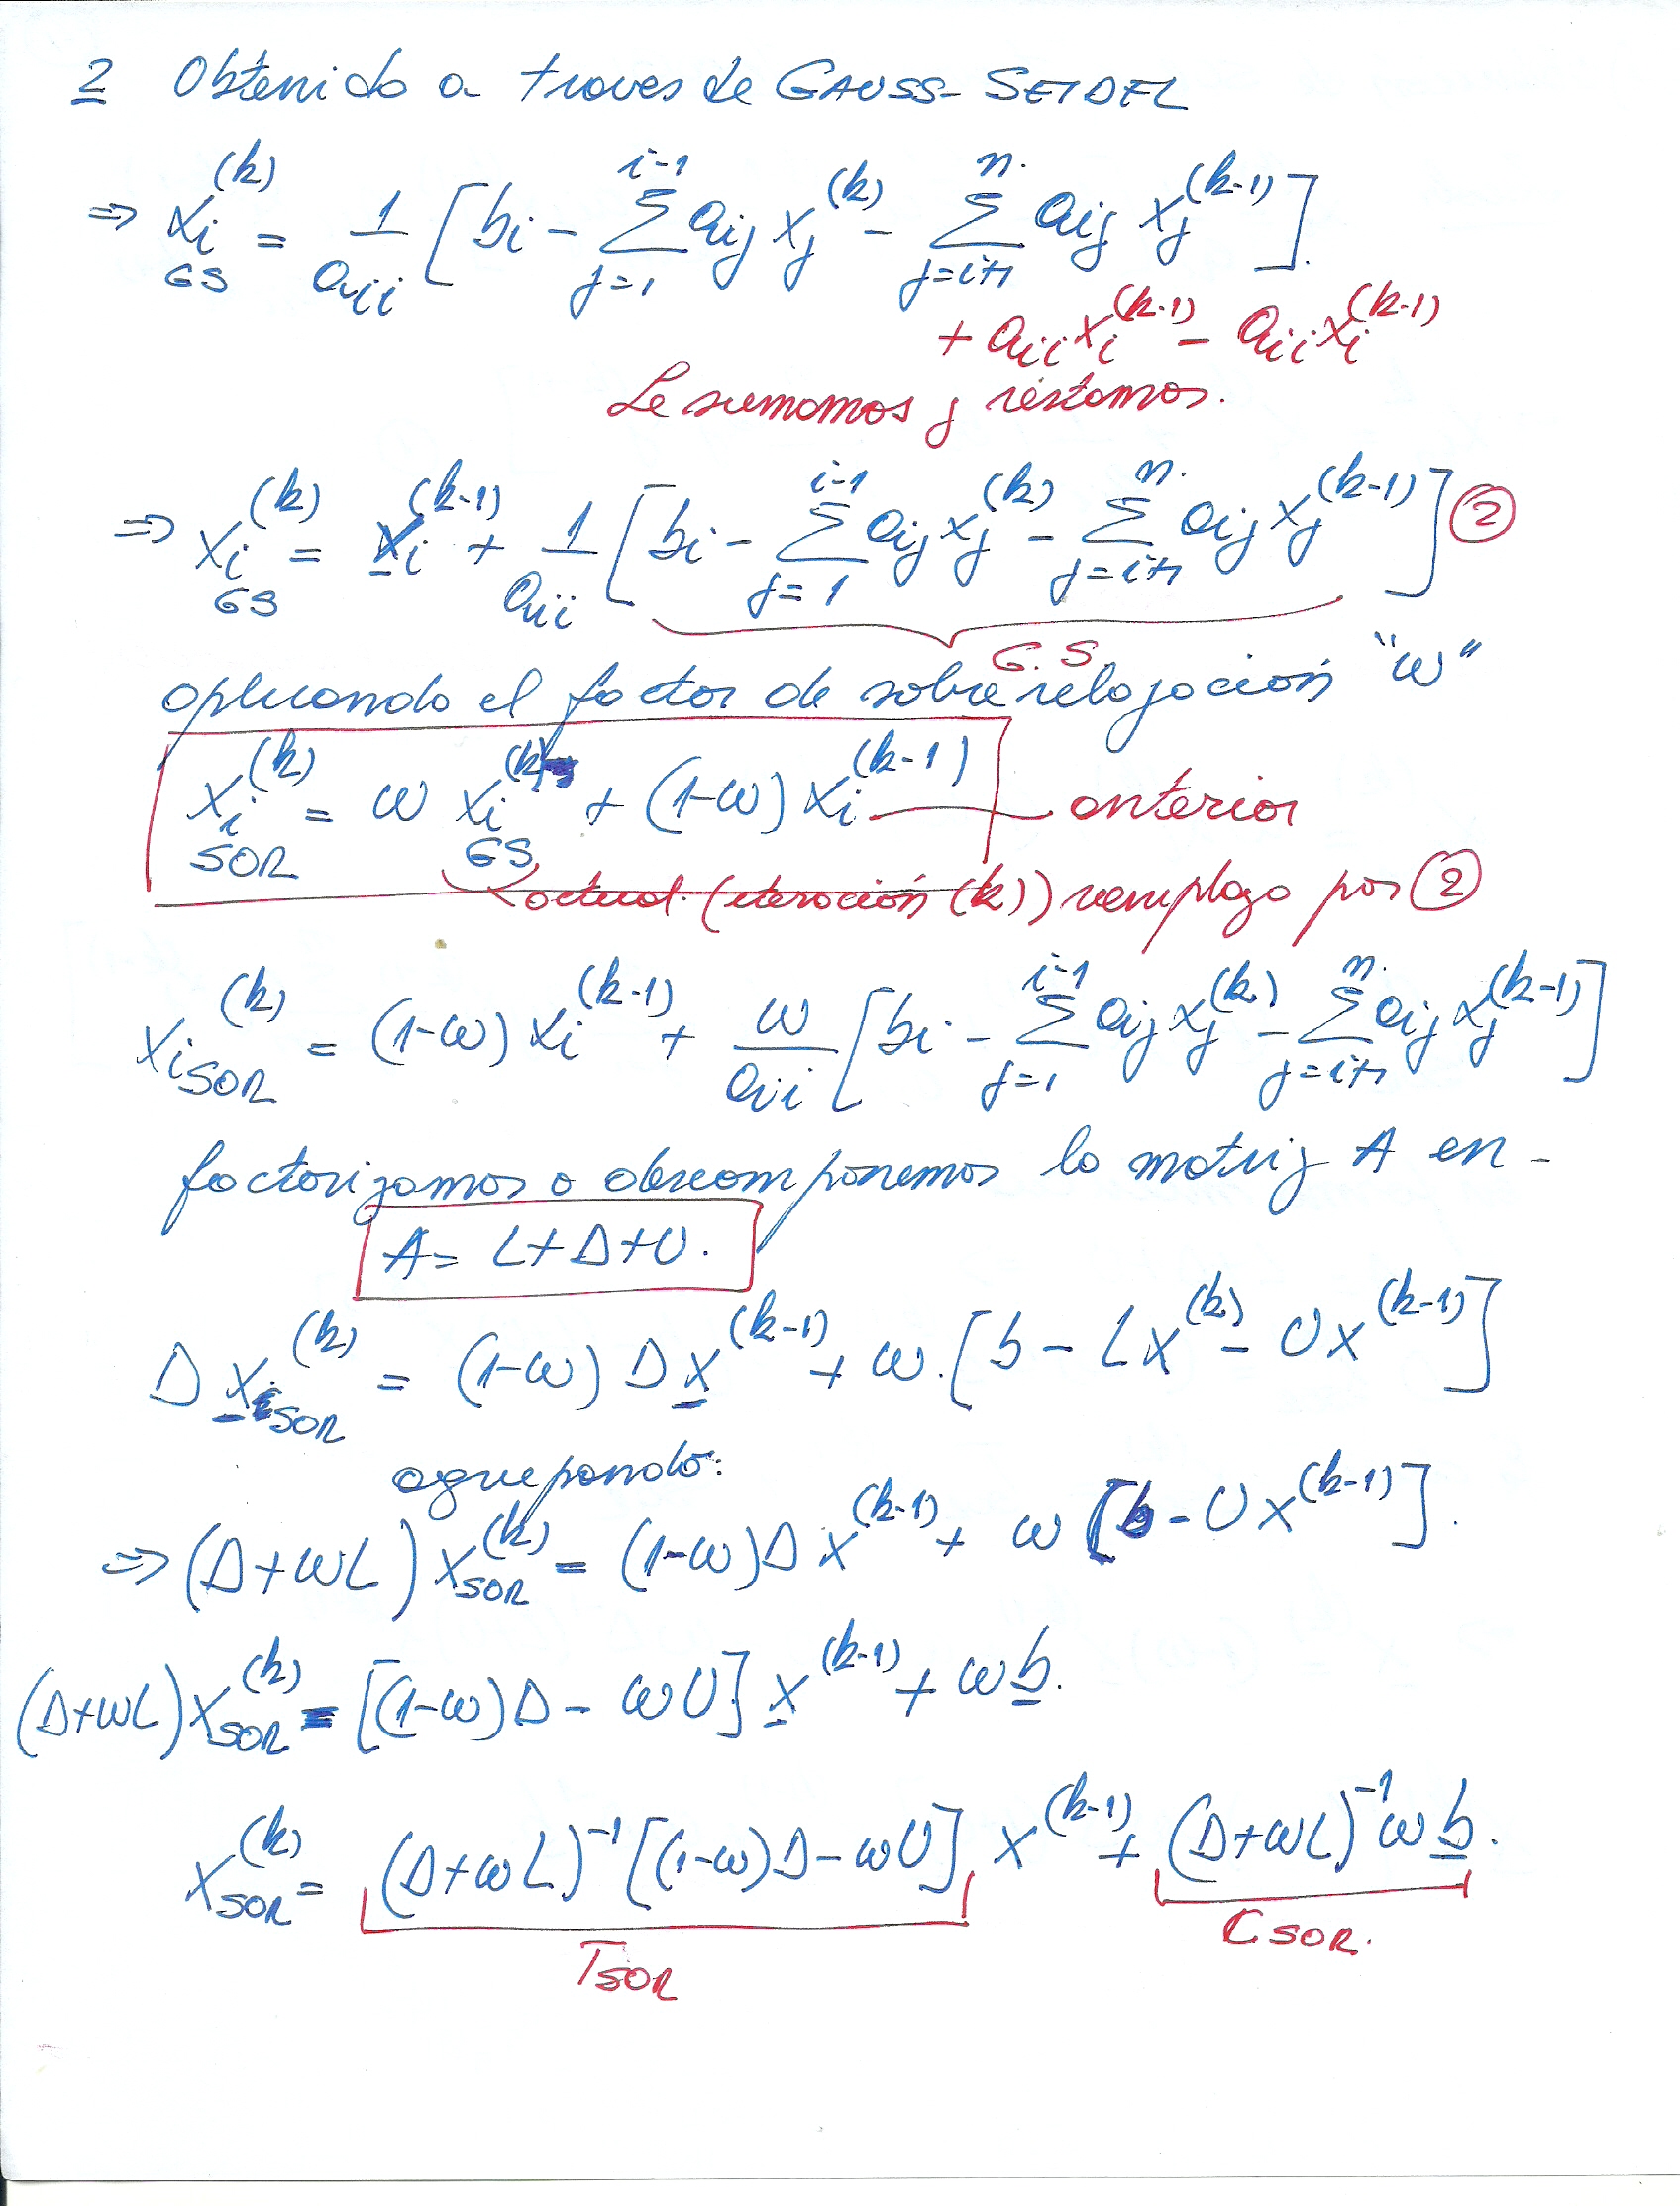 2 Obtenido a traves de GAUSS-SEIDEL
⇒ xᵢ^(k) GS = 1/aᵢᵢ [bᵢ - Σ_{j=1}^{i-1} aᵢⱼ xⱼ^(k) - Σ_{j=i+1}^{n} aᵢⱼ xⱼ^(k-1)].
+ aᵢᵢxᵢ^(k-1) - aᵢᵢxᵢ^(k-1)
Le sumamos y restamos.
⇒ xᵢ^(k) GS = xᵢ^(k-1) + 1/aᵢᵢ [bᵢ - Σ_{j=1}^{i-1} aᵢⱼxⱼ^(k) - Σ_{j=i+1}^{n} aᵢⱼxⱼ^(k-1)] ②
G.S
aplicando el factor de sobre relajación "ω"
xᵢ^(k) SOR = ω xᵢ^(k) GS + (1-ω) xᵢ^(k-1) anterior
actual (iteración (k)) remplazo por ②
xᵢ^(k) SOR = (1-ω) xᵢ^(k-1) + ω/aᵢᵢ [bᵢ - Σ_{j=1}^{i-1} aᵢⱼxⱼ^(k) - Σ_{j=i+1}^{n} aᵢⱼxⱼ^(k-1)]
factorizamos o descomponemos la matriz A en -
A = L+D+U.
D x^(k) SOR = (1-ω) D x^(k-1) + ω.[b - Lx^(k) - Ux^(k-1)]
agrupando:
⇒ (D+ωL) x^(k) SOR = (1-ω)D x^(k-1) + ω [b - Ux^(k-1)].
(D+ωL) x^(k) SOR = [(1-ω)D - ωU] x^(k-1) + ωb.
x^(k) SOR = (D+ωL)⁻¹ [(1-ω)D - ωU] x^(k-1) + (D+ωL)⁻¹ ωb.
T SOR C SOR.